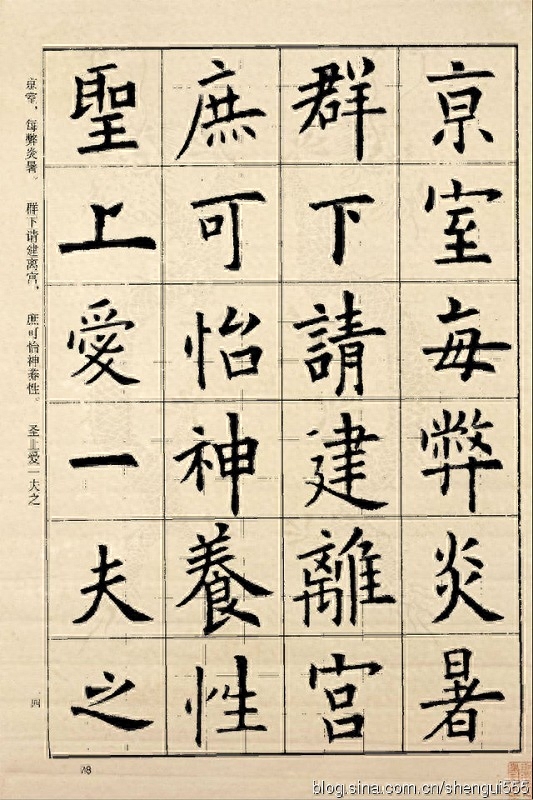 京室每弊炎暑
群下請建離宮
庶可怡神養性
聖上愛一夫之
京室，每弊炎暑。 群下请建离宫， 庶可怡神养性。 圣上爱一夫之
四
28
blog.sina.com.cn/shengui555